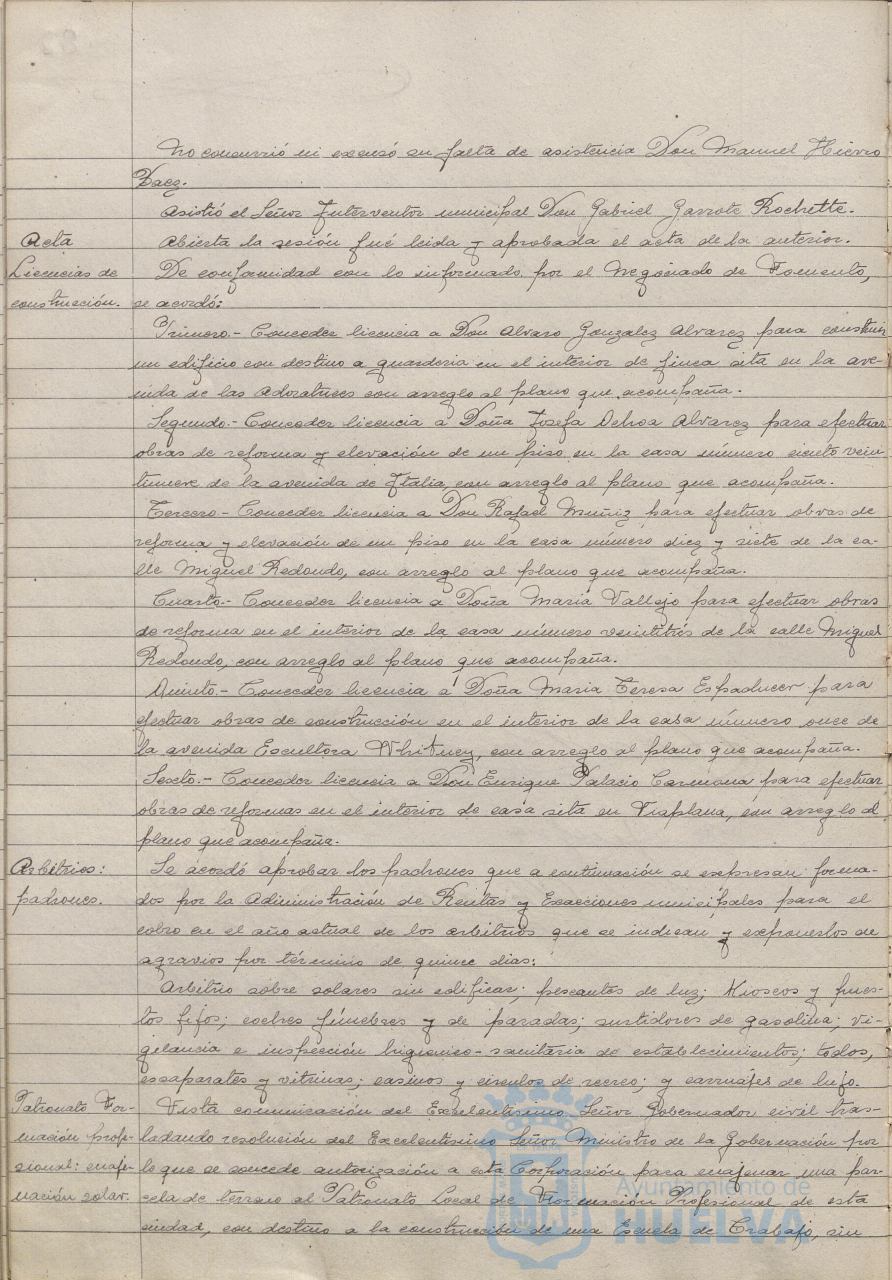 No concurrió ni excusó su falta de asistencia Don Manuel Hierro
Baez.
Asistió el Señor Interventor municipal Don Gabriel Garrote Rochette.
Acta
Abierta la sesión fué leida y aprobada el acta de la anterior.
Licencias de
construcción.
De conformidad con lo informado por el Negociado de Fomento,
se acordó:
Primero.- Conceder licencia a Don Alvaro Gonzalez Alvarez para construir
un edificio con destino a guarderia en el interior de finca sita en la ave-
nida de las Adoratrices con arreglo al plano que acompaña.
Segundo.- Conceder licencia a Doña Josefa Ochoa Alvarez para efectuar
obras de reforma y elevación de un piso en la casa número ciento vein
tinueve de la avenida de Italia, con arreglo al plano que acompaña.
Tercero.- Conceder licencia a Don Rafael Muñiz para efectuar obras de
reforma y elevación de un piso en la casa número diez y siete de la ca-
lle Miguel Redondo, con arreglo al plano que acompaña.
Cuarto.- Conceder licencia a Doña Maria Vallejo para efectuar obras
de reforma en el interior de la casa número veintitrés de la calle Miguel
Redondo, con arreglo al plano que acompaña.
Quinto.- Conceder licencia a Doña Maria Teresa Espaducer para
efectuar obras de construcción en el interior de la casa número once de
la avenida Escultora Whitney, con arreglo al plano que acompaña.
Sexto.- Conceder licencia a Don Enrique Palacio Carmona para efectuar
obras de reformas en el interior de casa sita en Viaplana, con arreglo al
plano que acompaña.
Arbitrios:
padrones.
Se acordó aprobar los padrones que a continuación se expresan forma-
dos por la Administración de Rentas y Exacciones municipales para el
cobro en el año actual de los arbitrios que se indican y expuestos de
agravios por término de quince dias:
Arbitrio sobre solares sin edificar; pescantes de luz; Kioscos y pues-
tos fijos; coches fúnebres y de paradas; surtidores de gasolina; vi-
gilancia e inspección higienico-sanitária de establecimientos; toldos,
escaparates y vitrinas; casinos y circulos de recreo; y carruajes de lujo.
Patronato For-
mación profe-
sional: enaje-
nación solar.
Vista comunicación del Excelentisimo Señor Gobernador civil tras-
ladando resolución del Excelentisimo Señor Ministro de la Gobernación por
la que se concede autorización a esta Corporación para enajenar una par-
cela de terreno al Patronato Local de Formación Profesional de esta
ciudad, con destino a la construcción de una Escuela de Trabajo, sin
Ayuntamiento de
HUELVA